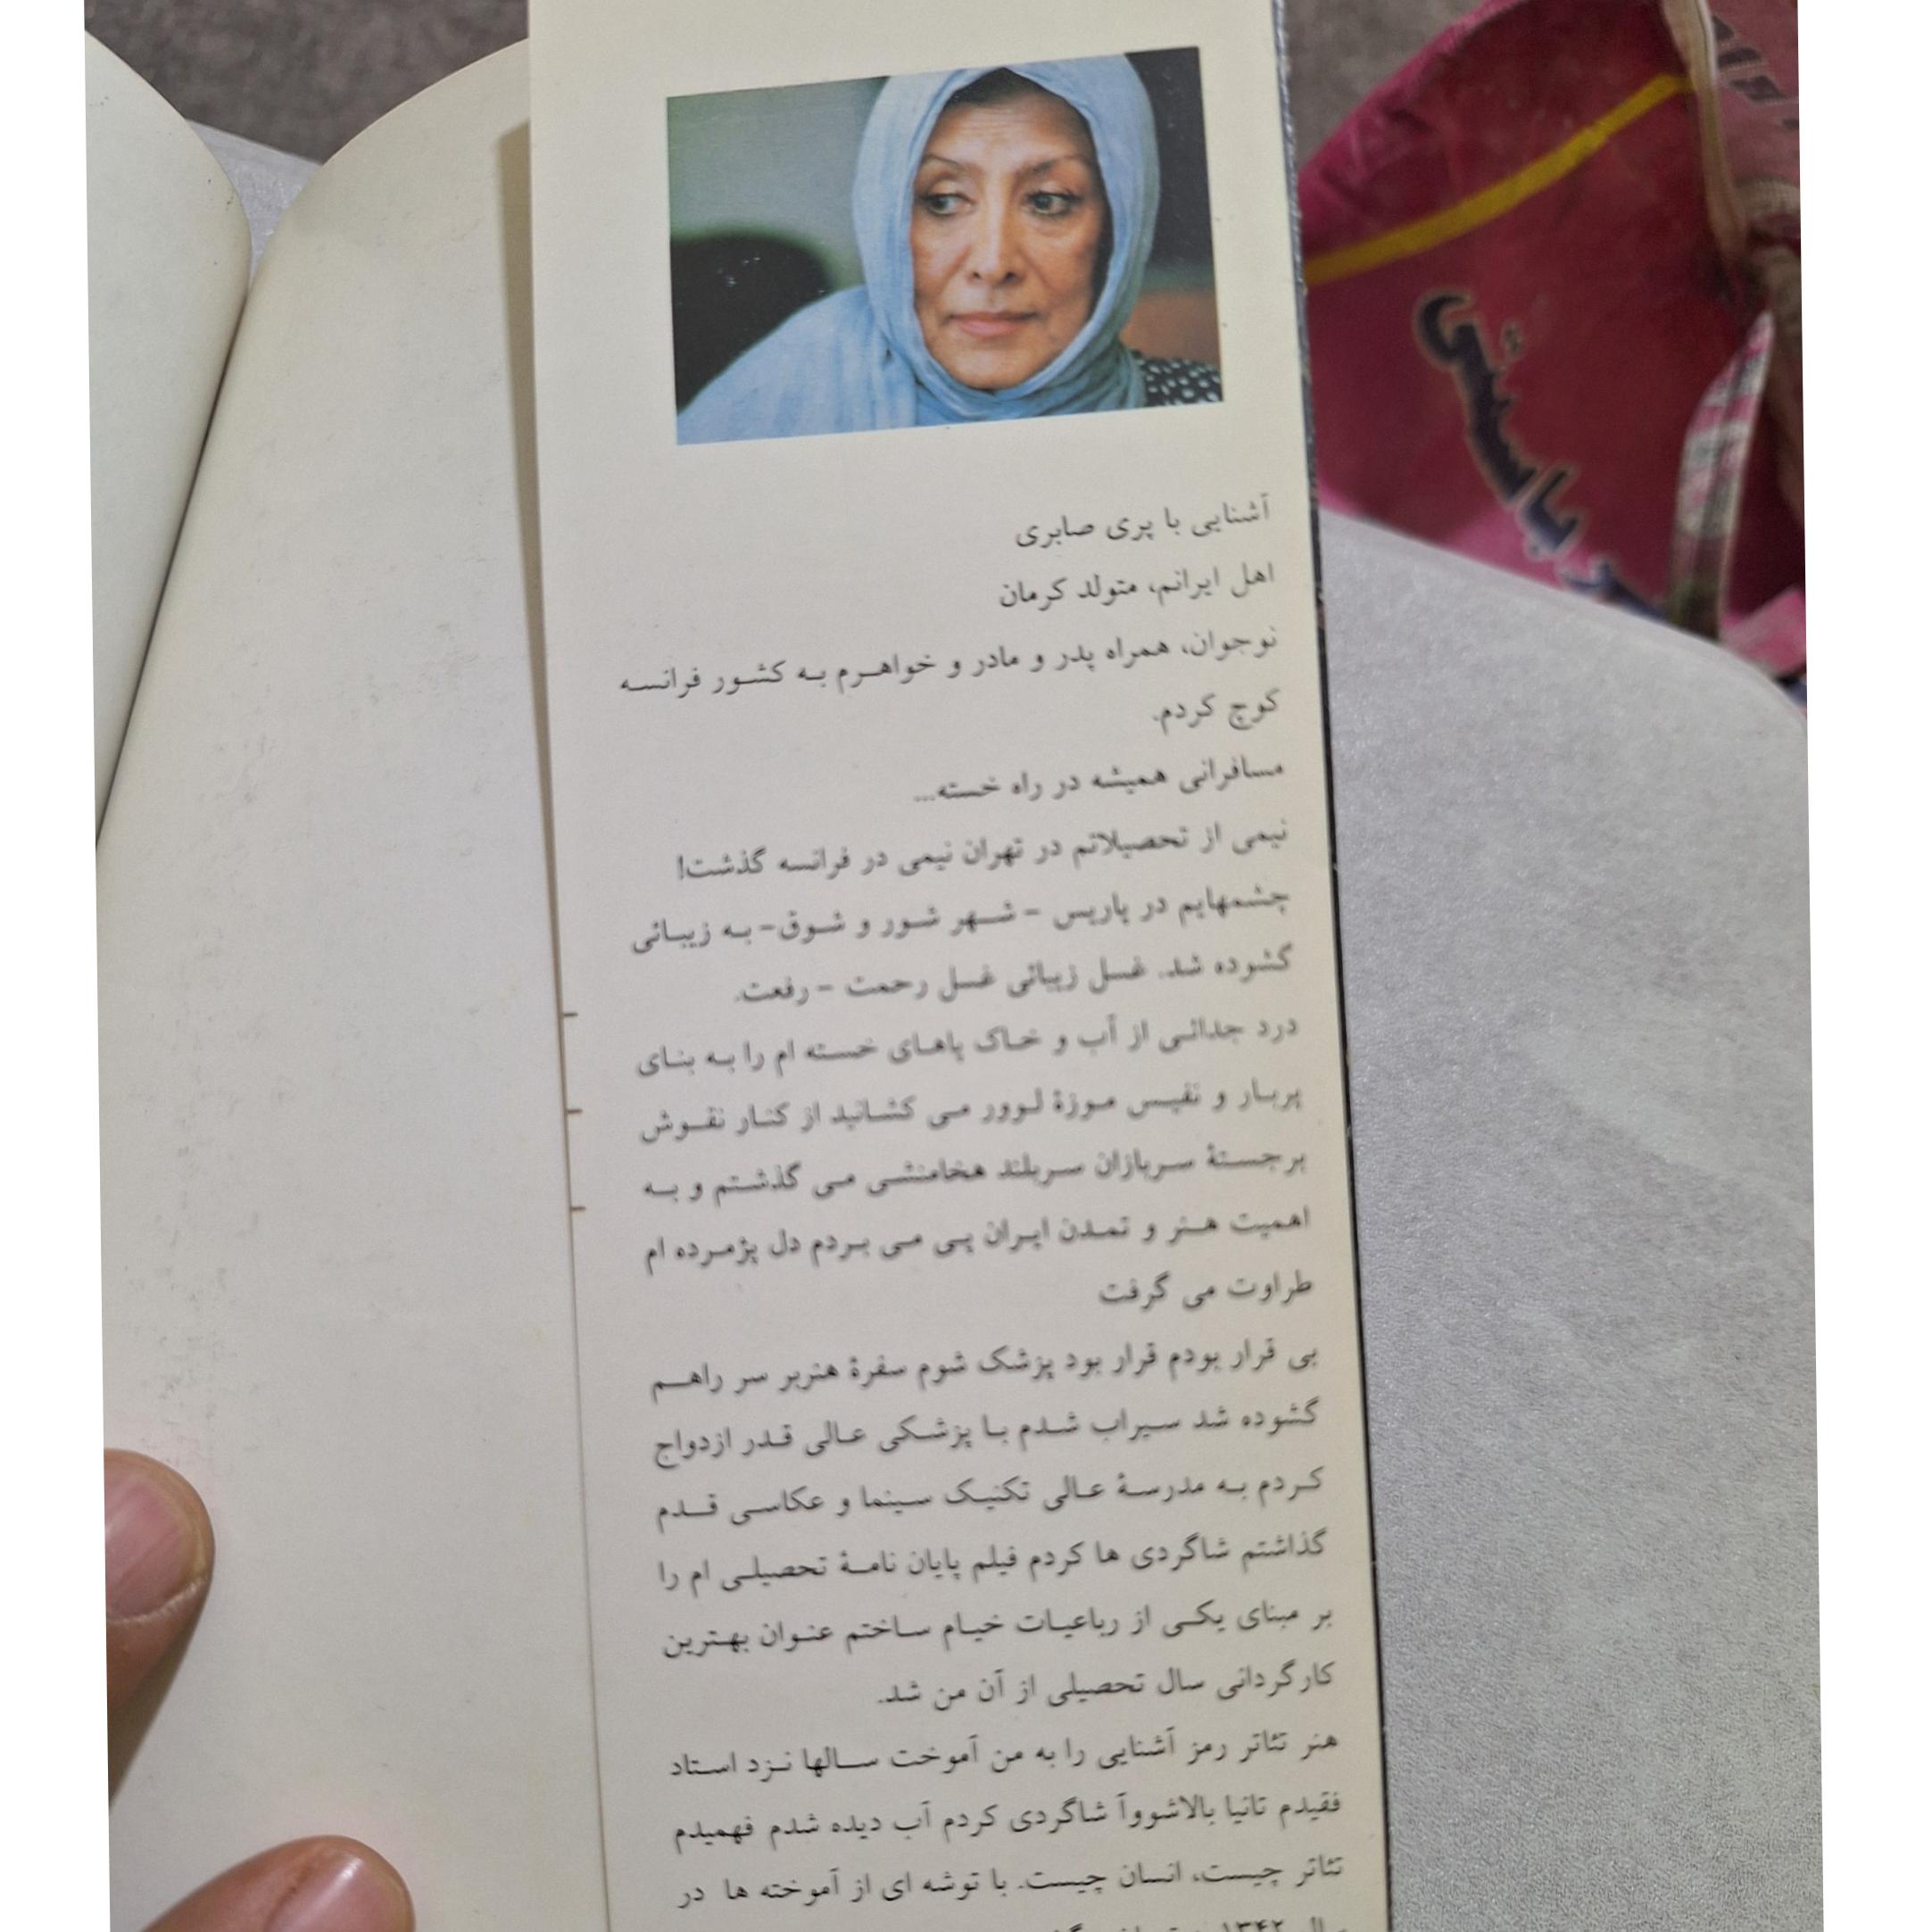 آشنایی با پری صابری
اهل ایرانم، متولد کرمان
نوجوان، همراه پدر و مادر و خواهرم به کشور فرانسه
کوچ کردم.
مسافرانی همیشه در راه خسته...
نیمی از تحصیلاتم در تهران نیمی در فرانسه گذشت!
چشمهایم در پاریس - شهر شور و شوق- به زیبائی
گشوده شد. غسل زیبائی غسل رحمت - رفعت.
درد جدائی از آب و خاک پاهای خسته ام را به بنای
پربار و نفیس موزۀ لوور می کشانید از کنار نقوش
برجستۀ سربازان سربلند هخامنشی می گذشتم و به
اهمیت هنر و تمدن ایران پی می بردم دل پژمرده ام
طراوت می گرفت
بی قرار بودم قرار بود پزشک شوم سفرۀ هنربر سر راهم
گشوده شد سیراب شدم با پزشکی عالی قدر ازدواج
کردم به مدرسۀ عالی تکنیک سینما و عکاسی قدم
گذاشتم شاگردی ها کردم فیلم پایان نامۀ تحصیلی ام را
بر مبنای یکی از رباعیات خیام ساختم عنوان بهترین
کارگردانی سال تحصیلی از آن من شد.
هنر تئاتر رمز آشنایی را به من آموخت سالها نزد استاد
فقیدم تانیا بالاشووآ شاگردی کردم آب دیده شدم فهمیدم
تئاتر چیست، انسان چیست. با توشه ای از آموخته ها در
سال ۱۳۴۲